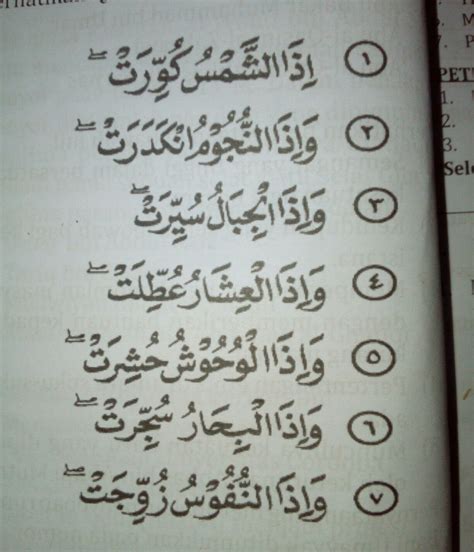 ١ إِذَا الشَّمْسُ كُوِّرَتْ ۖ
٢ وَإِذَا النُّجُوْمُ انْكَدَرَتْ ۖ
٣ وَإِذَا الْجِبَالُ سُيِّرَتْ ۖ
٤ وَإِذَا الْعِشَارُ عُطِّلَتْ ۖ
٥ وَإِذَا الْوُحُوْشُ حُشِرَتْ ۖ
٦ وَإِذَا الْبِحَارُ سُجِّرَتْ ۖ
٧ وَإِذَا النُّفُوْسُ زُوِّجَتْ ۖ
PET
1.
2.
3.
Sele